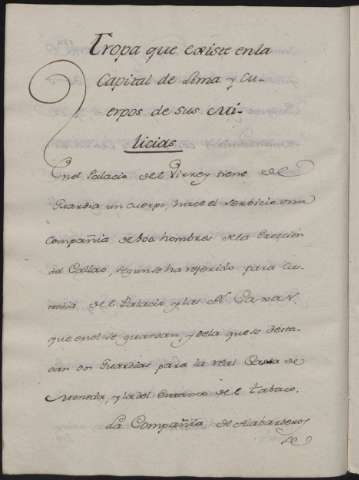 Tropa que existe en la
Capital de Lima y Cu-
erpos de sus Mi-
licias
En el Palacio del Virrey tiene de
Guardia un cuerpo, hace el servicio una
compañia de 100 hombres de la Guarnicion
del Callao, segun se ha referido para Cus-
todia del Palacio y las R.s Caxas,
que en el se guardan, y de la que se desta-
can dos Guardias para la real Casa de
Moneda, y la del Estanco de el Tabaco.
La Compañia de Alabarderos
se